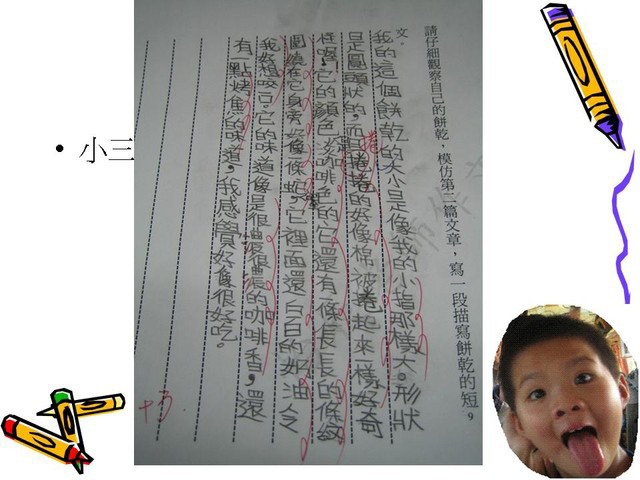 小三
請仔細觀察自己的餅乾，模仿第二篇文章，寫一段描寫餅乾的短
文。
我的這個餅乾的大小是像我的小指那樣大。形狀
是圓頭狀的，而且捲捲的好像棉被捲起來一樣好奇
怪喔，它的顏色淡咖啡色的，它還有一條長長的條紋
圍繞在它身旁好像一條蛇，它裡面還白白的奶油令
我好想咬一口。它的味道像是很濃很濃的咖啡香，還
有一點烤焦的味道，我感覺好像很好吃。
+3